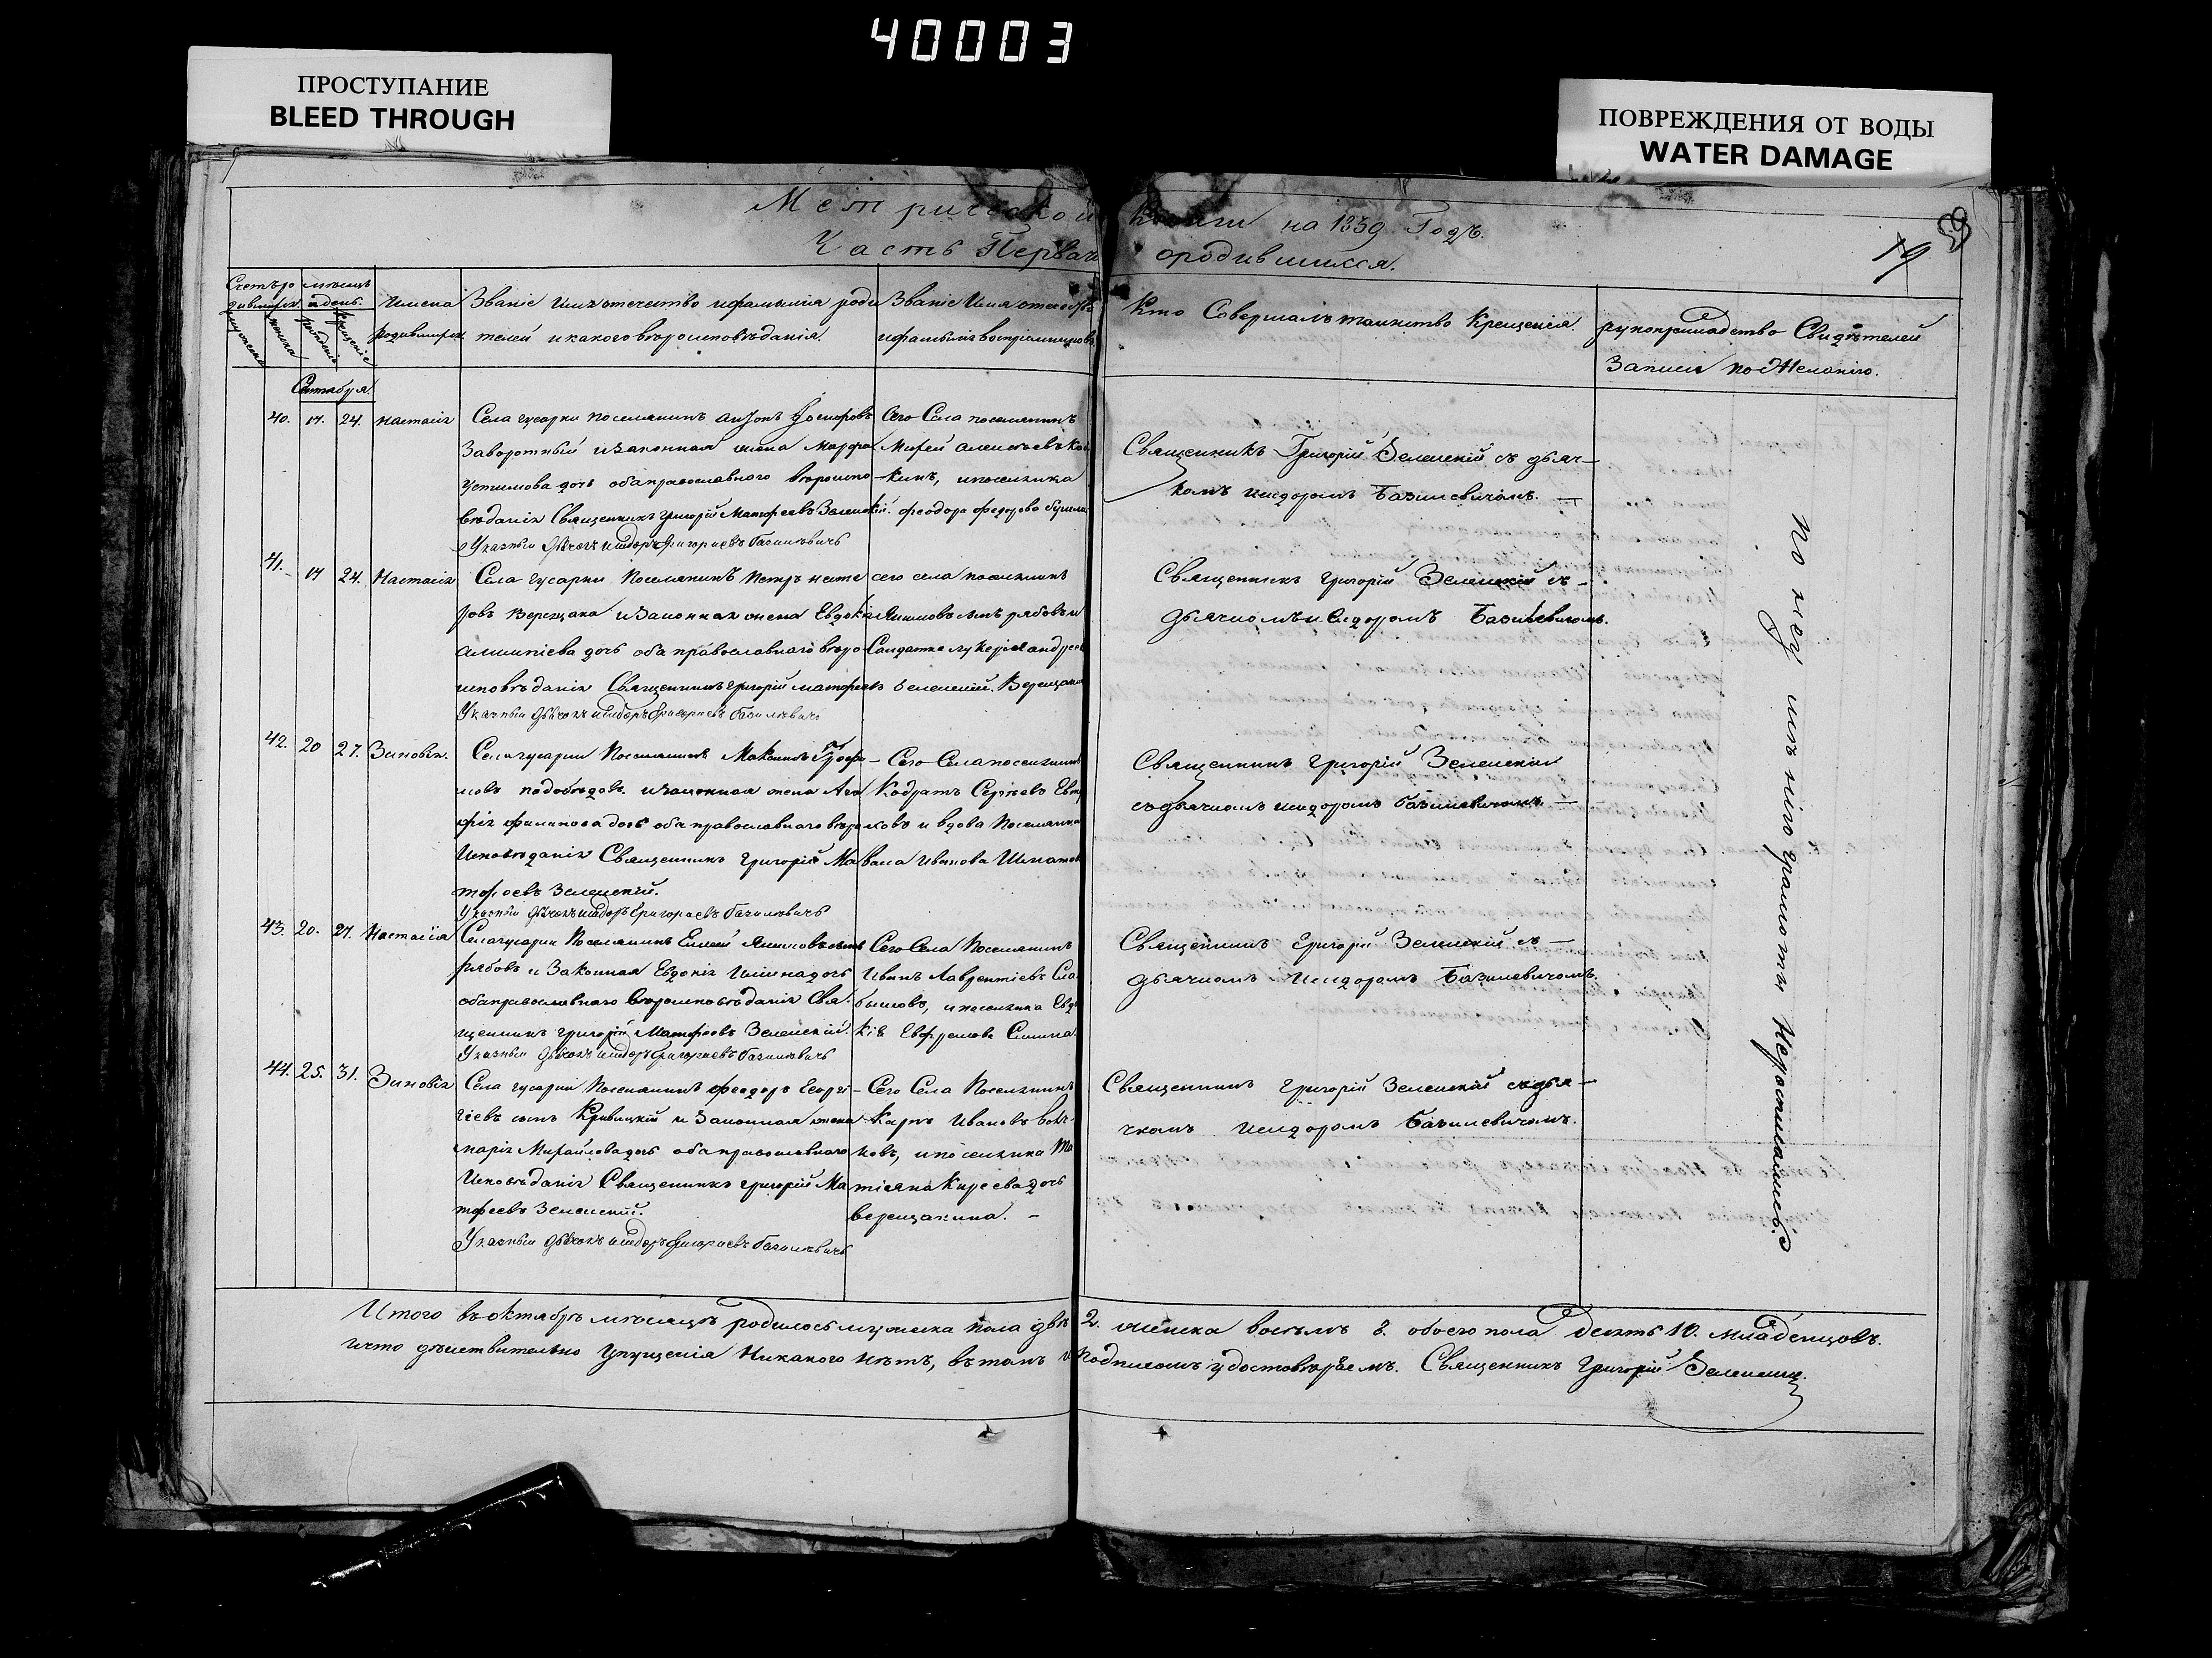 40003
ПРОСТУПАНИЕ
BLEED THROUGH
ПОВРЕЖДЕНИЯ ОТ ВОДЫ
WATER DAMAGE
Метрической Книги на 1839 Годъ.
Часть Первая ородившихся.
19
Счетъ ро
дившихся
мѣсяцъ
и день.
Имена
родившихся
Званіе имя отечество ифамилія роди
телей икакого вѣроисповѣданія.
Званіе Имя отечество
ифамилія воспріемниковъ
Кто Совершалъ таинство Крещенія.
рукоприкладство Свидѣтелей
Записи по Желанію.
40. 17. 24. настасія
Села гусарки поселянинъ
Заворотный изаконная жена Марфа
устимова дочь обаправославного вѣроиспо
вѣданія Священникъ григорій Матфеевъ Зеленскій.
Указный Дьячокъ исидоръ григориевъ базилевичъ
Сего Села поселянинъ
феодора федорова
Священникъ Григорій Зеленскій съ дьяч—
комъ исидоромъ Базилевичомъ. —
41. 17 24. Настасія
Села гусарки Поселянинъ Петръ несте
ровъ Верещака изаконная жена Евдокія
алимпіева дочь оба православнаго вѣро
исповѣданія Священникъ григорій матфеевъ Зеленскій.
Указный Дьячокъ исидоръ григориевъ базилевичъ
сего села поселянинъ
Солдатка лукерія андрее
Верещаки
Священникъ григорій Зеленскій съ —
дьячкомъ исидоромъ Базилевичомъ.
42. 20 27. Зиновія.
Села гусарки Поселянинъ Максимъ Трофи—
мовъ подобѣдовъ. изаконная жена Ага
фія филипова дочь оба православнаго вѣро
Исповѣданія Священникъ григорій Ма
тфеевъ Зеленскій.
Указный Дьячокъ исидоръ григориевъ базилевичъ
Сего Села поселянинъ
Кодратъ Сергѣевъ
ковъ и вдова Поселянка
васа Иванова
Священникъ григорій Зеленскій
съдьячкомъ исидоромъ базилевичомъ —
43. 20. 27. Настасія
Села гусарки Поселянинъ
рябовъ и Законная Евдокія дочь
обаправославнаго вѣроисповѣданія Свя.
щенникъ григорій Матфеевъ Зеленскій.
Указный Дьячокъ исидоръ григориевъ базилевичъ
Сего Села Поселянинъ
Иванъ Лаврентіевъ Сла
бышовъ, ипоселянка Евдо
кія Евфремова
Священникъ григорій Зеленскій съ —
дьячкомъ Исидоромъ Базилевичомъ.
44. 25. 31. Зиновія
Села гусарки Поселянинъ феодоръ Георгі—
гіевъ сынъ Кривицкій и Законная жена
марія Михайлова дочь оба православнаго
Исповѣданія Священникъ григорій Ма
тфеевъ Зеленскій.
Указный Дьячокъ исидоръ григориевъ базилевичъ
Сего Села Поселянинъ
Карпъ Ивановъ
ковъ, ипоселянка Та
тіяна Киреева дочь
верещакина. —
Священникъ григорій Зеленскій съдья—
чкомъ Исидоромъ Базилевичомъ.
По неу имѣнію грамоты Неросписались
Итого въ октябрѣ мѣсяцѣ родилось мужеска пола два 2. женска восемь 8. обоего пола десять 10. младенцовъ.
ичто дѣйствительно упущенія Никакого нѣтъ, въ томъ и Подписомъ удостовѣряемъ. Священникъ григорій Зеленскій.